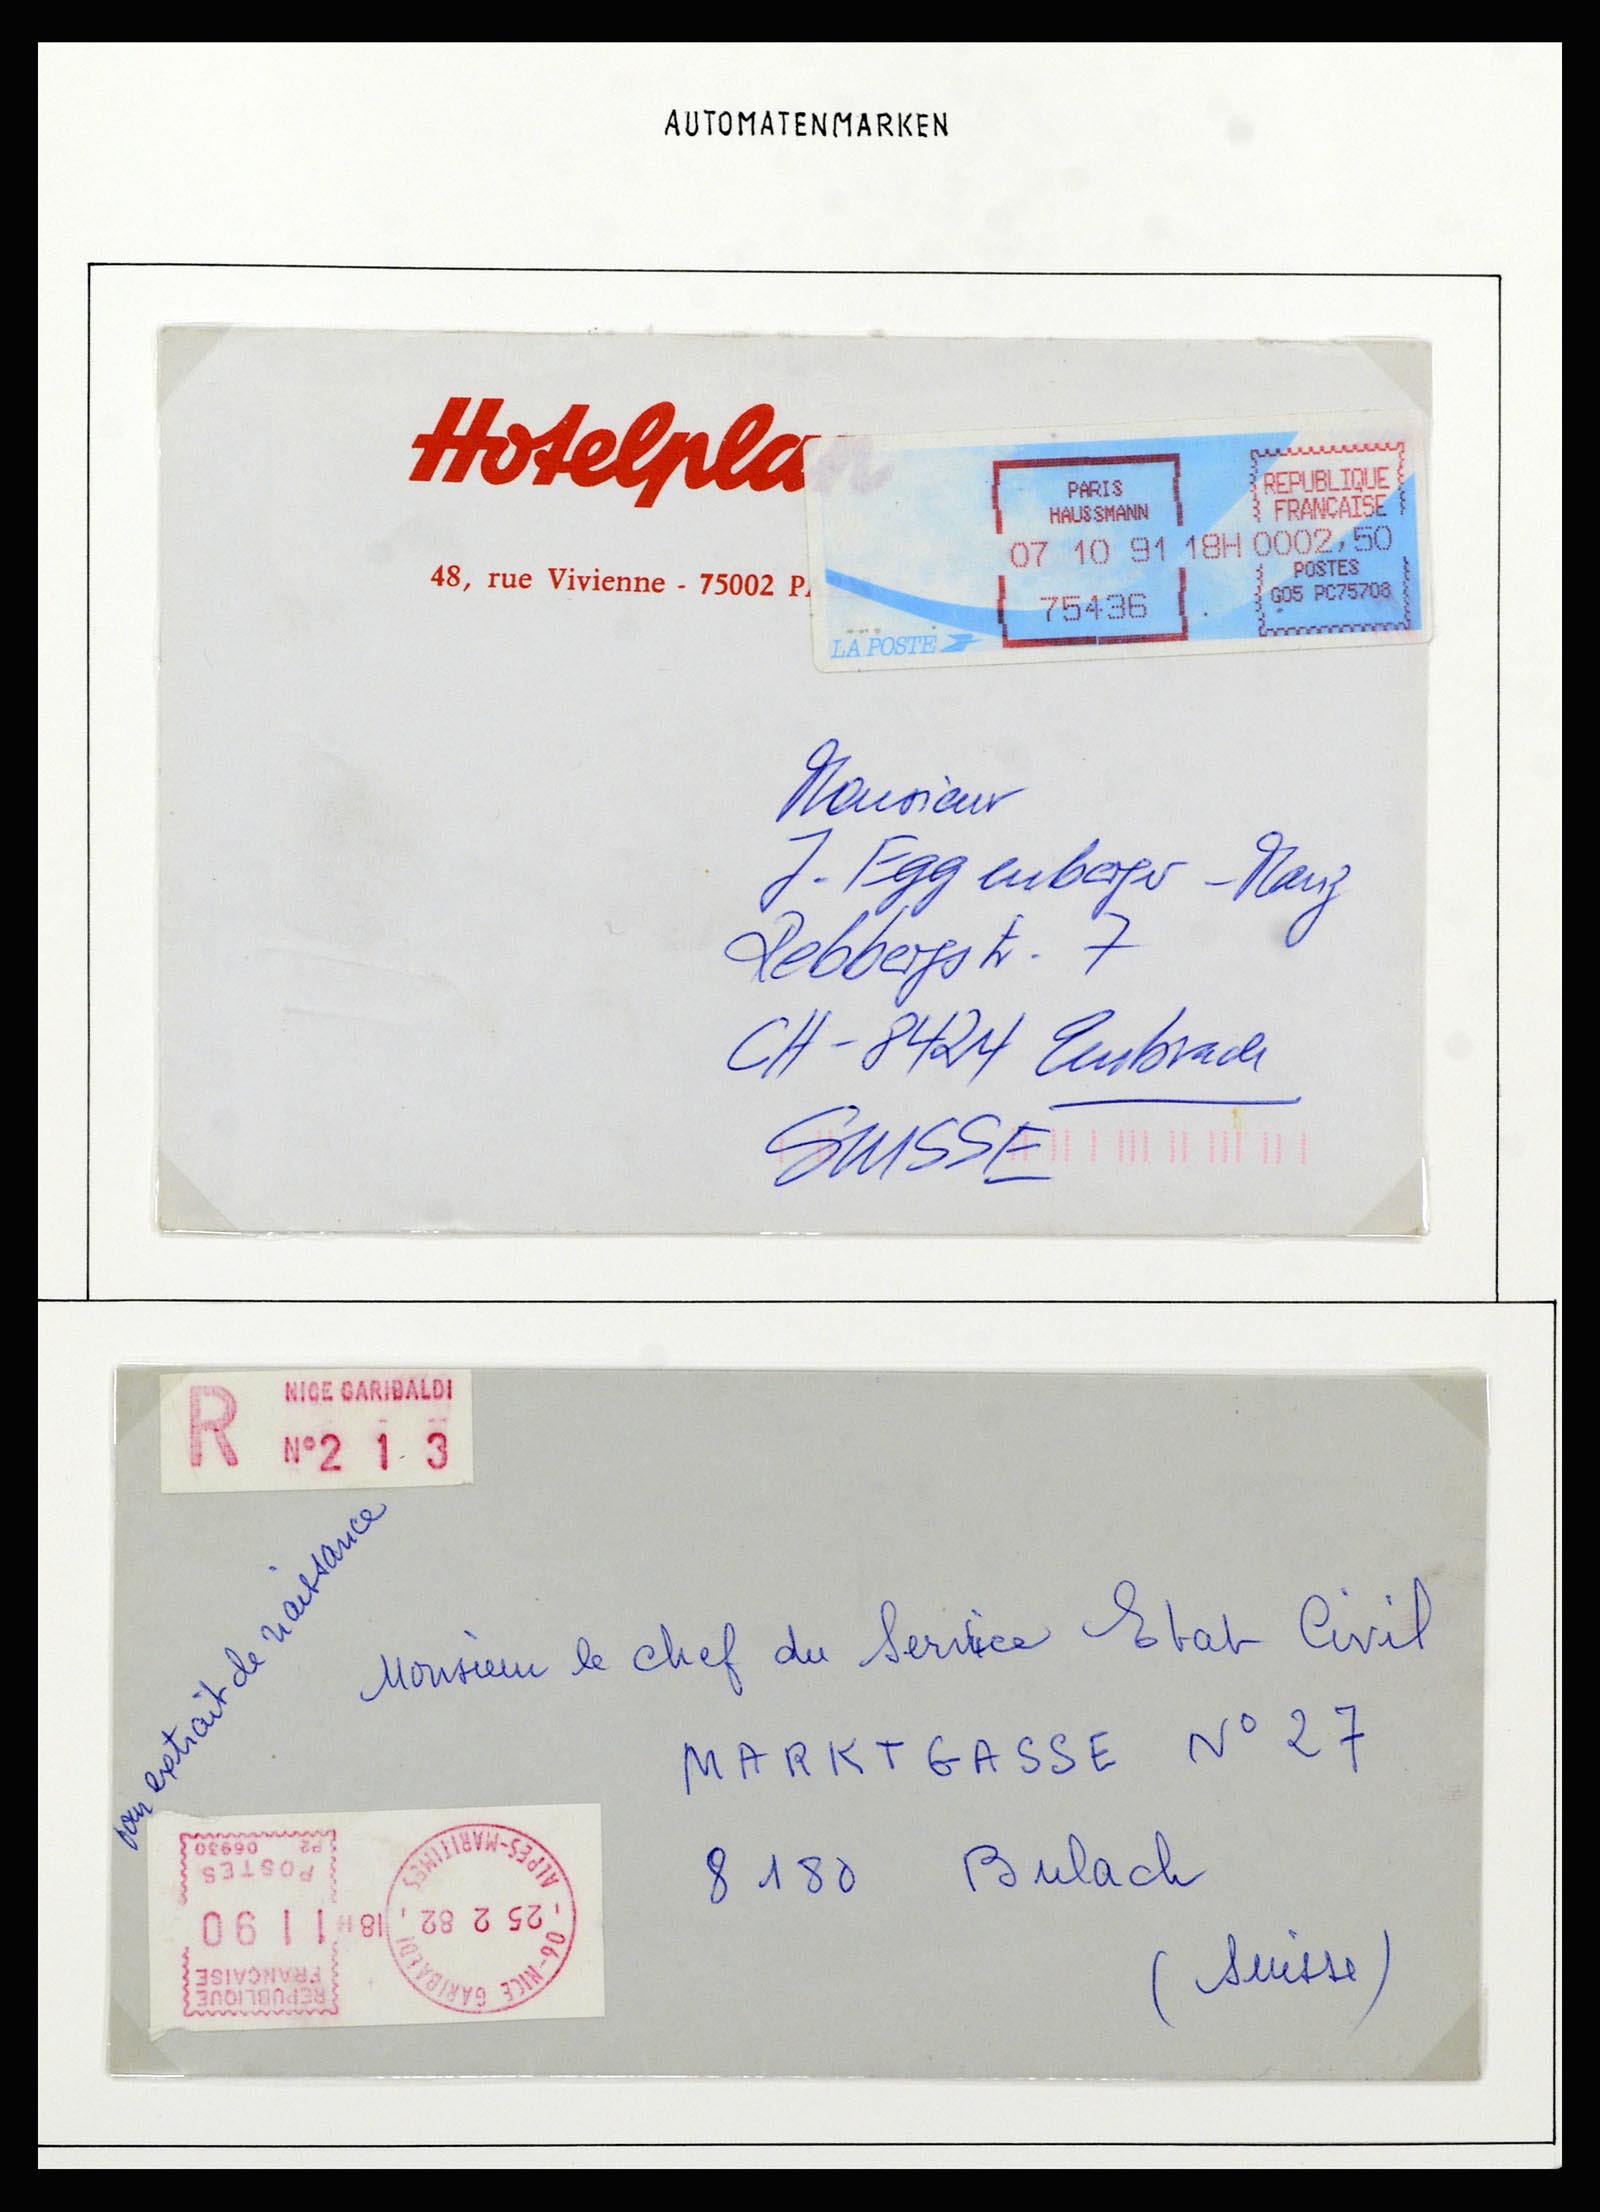 AUTOMATENMARKEN
Hotelplan
48, rue Vivienne - 75002 PA
PARIS
HAUSSMANN
07 10 91 18H
75436
REPUBLIQUE
FRANCAISE
0002,50
POSTES
G05 PC75708
LA POSTE
Monsieur
J. Eggenberger - Manz
Rebbergstr. 7
CH - 8424 Embrach
SUISSE
R
NICE GARIBALDI
N° 2 1 3
pour extrait de naissance
Monsieur le chef du Service Etat Civil
MARKTGASSE N° 27
8180 Bulach
(Suisse)
REPUBLIQUE
FRANÇAISE
1190
POSTES
P2 06930
06-NICE GARIBALDI
25 2 82
18H
ALPES-MARITIMES